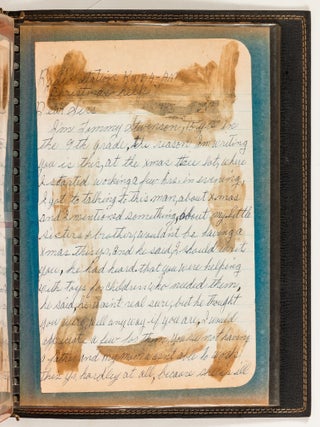 Christmas
Dear Sirs
I'm Timmy
the 9th grade, the reason am writing
you is this, at the xmas tree lot, where
I started working a few hrs. in evening
I got to talking to this man, about xmas
and I mentioned something, about my little
sisters & brother, wouldnt be having a
xmas things, and he said, I should write
you, he had heard that you were helping
with toys for children, who needed them,
he said, he wasnt real sure, but he thought
you were, well any way if you are, I would
appreciate a few for them. You see not having
a father, and my mom wasnt able to work
this yr. hardley at all, because she was ill